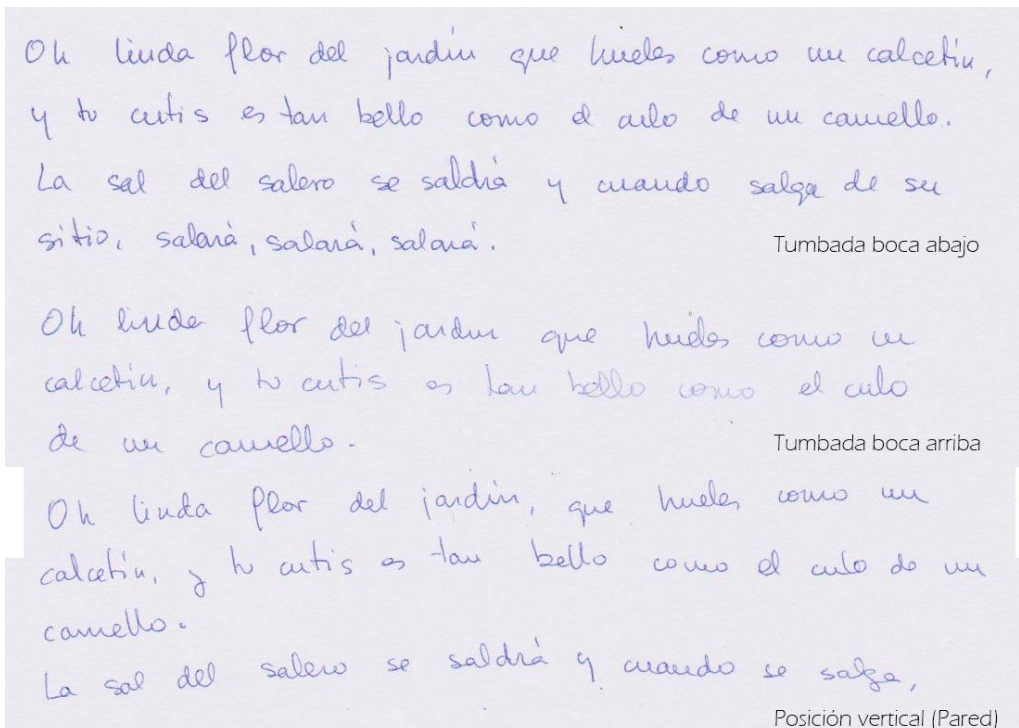 Oh linda flor del jardín que hueles como un calcetín,
y tu cutis es tan bello como el culo de un camello.
La sal del salero se saldrá y cuando salga de su
sitio, salará, salará, salará.
Tumbada boca abajo
Oh linda flor del jardin que hueles como un
calcetín, y tu cutis es tan bello como el culo
de un camello.
Tumbada boca arriba
Oh linda flor del jardín, que hueles como un
calcetín, y tu cutis es tan bello como el culo de un
camello.
La sal del salero se saldrá y cuando se salga,
Posición vertical (Pared)